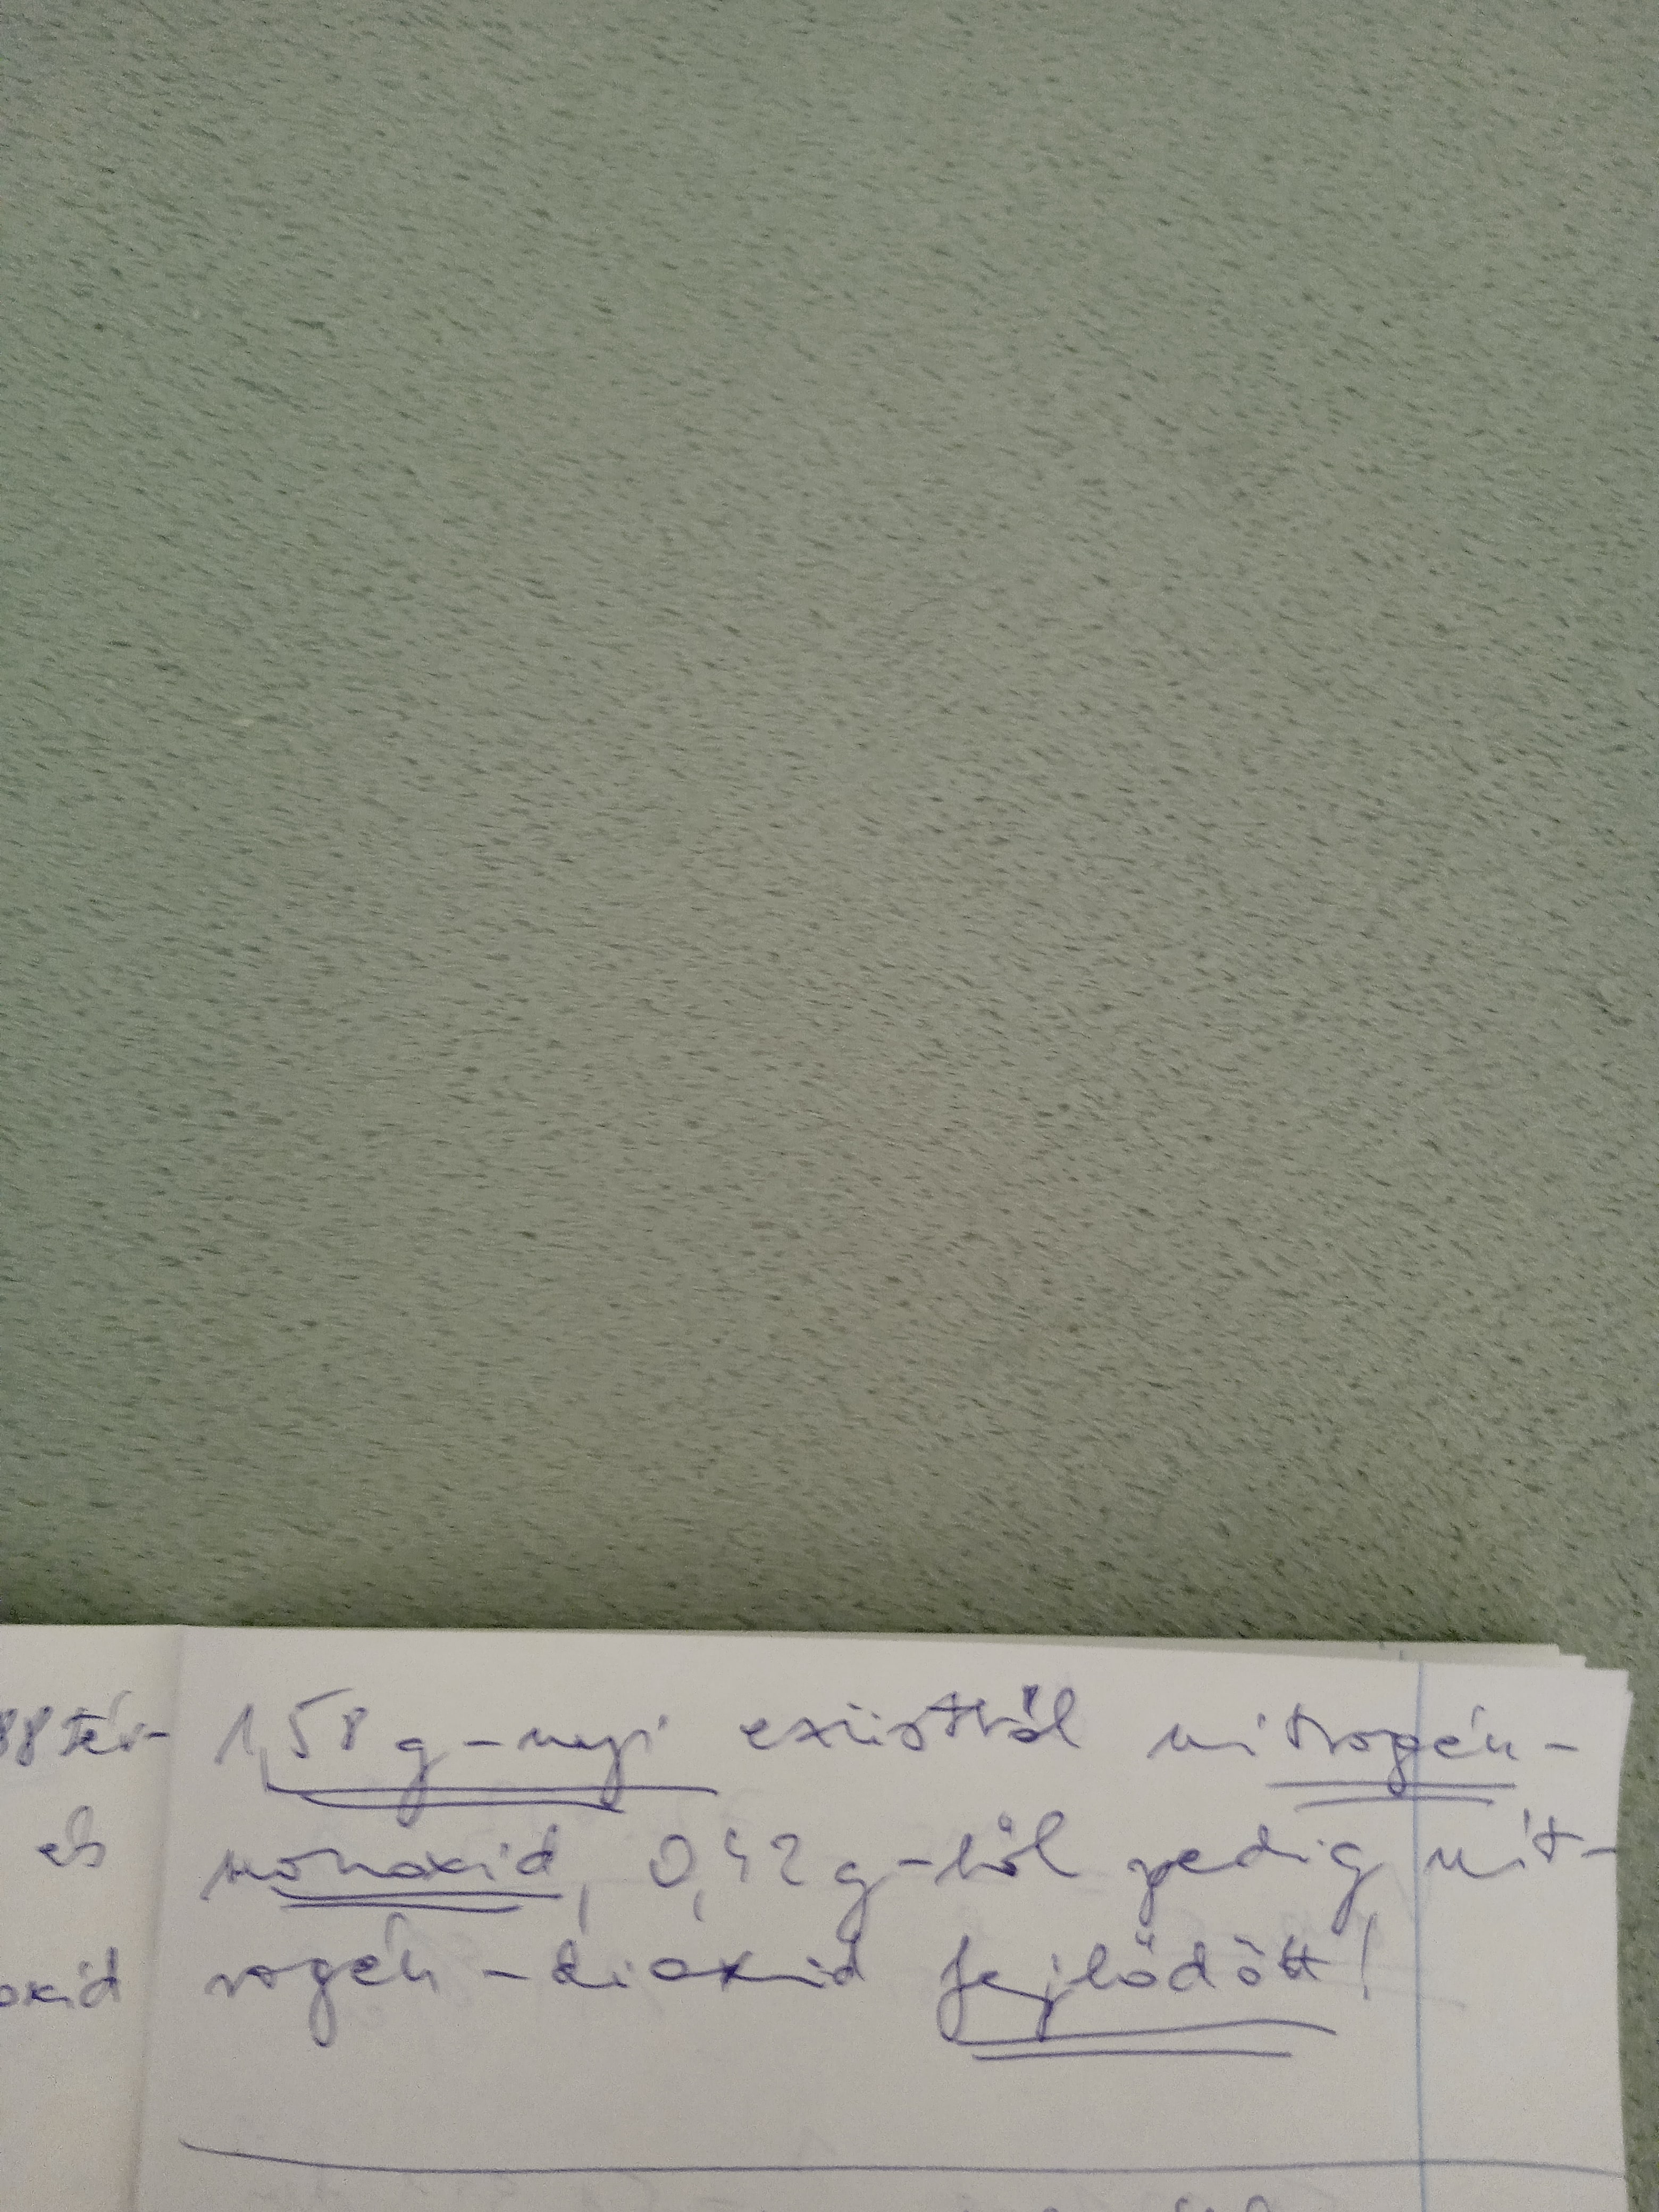 88 tér-
és
oxid
1,58 g-nyi ezüstből nitrogén-
monoxid, 0,42 g-ból pedig nit-
rogén-dioxid fejlődött!